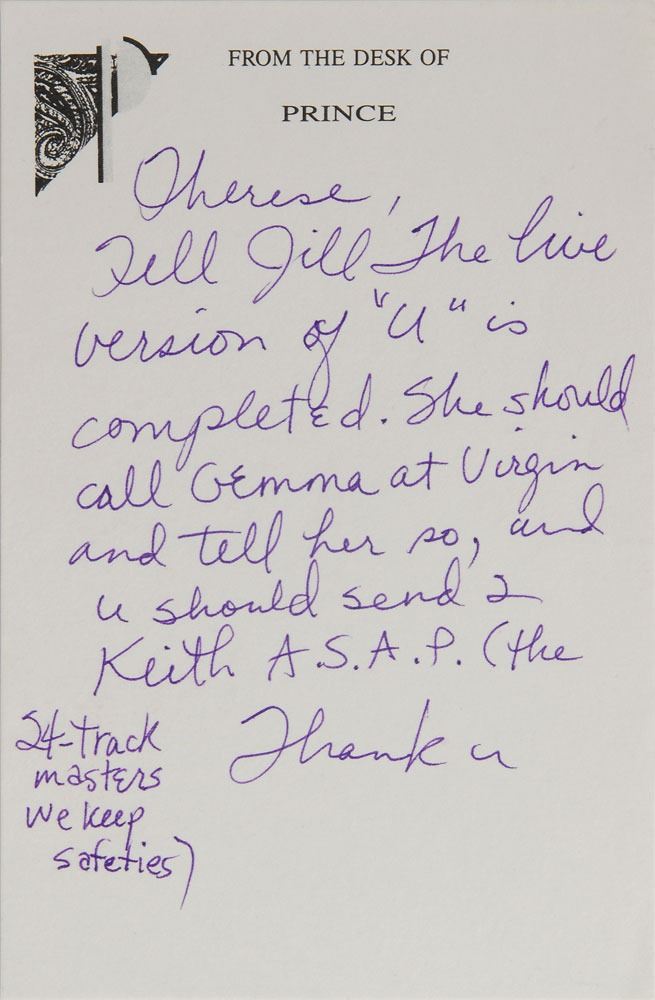 FROM THE DESK OF
PRINCE
Therese,
Tell Jill The live
version of "U" is
completed. She should
call Gemma at Virgin
and tell her so, and
u should send 2
Keith A.S.A.P. (the
24-track
masters
we keep
safeties)
Thank u